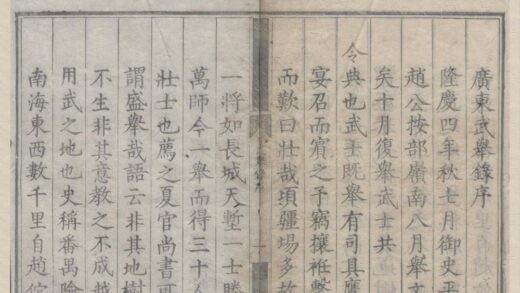 廣東武舉錄序
隆慶四年秋七月御史平
趙公按部嶺南八月舉文
矣十月復舉武士共
令典也武士既舉有司具鷹
宴召而賓之予竊攘袵擊
而歎曰壯哉頃疆埸多故
一將如長城天塹一士勝
萬師今一舉而得三十人
壯士也薦之夏官尚書可
謂盛舉哉語云非其地樹
不生非其意教之不成越
用武之地也史稱番禺險
南海東西數千里自趙佗